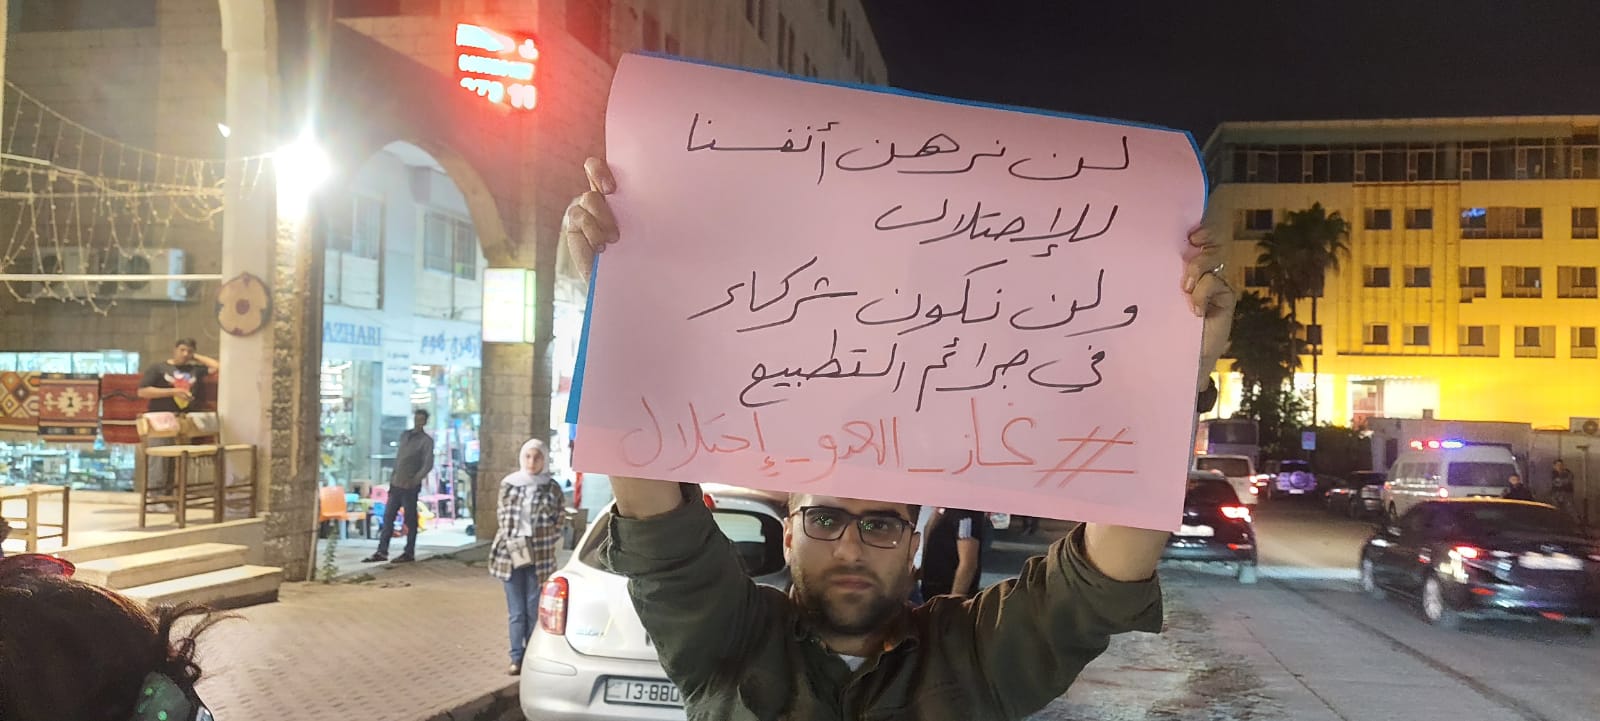 لن نرهن أنفسنا
للإحتلال
ولن نكون شركاء
في جرائم التطبيع
#غاز_العدو_إحتلال
AZHARI
13-880